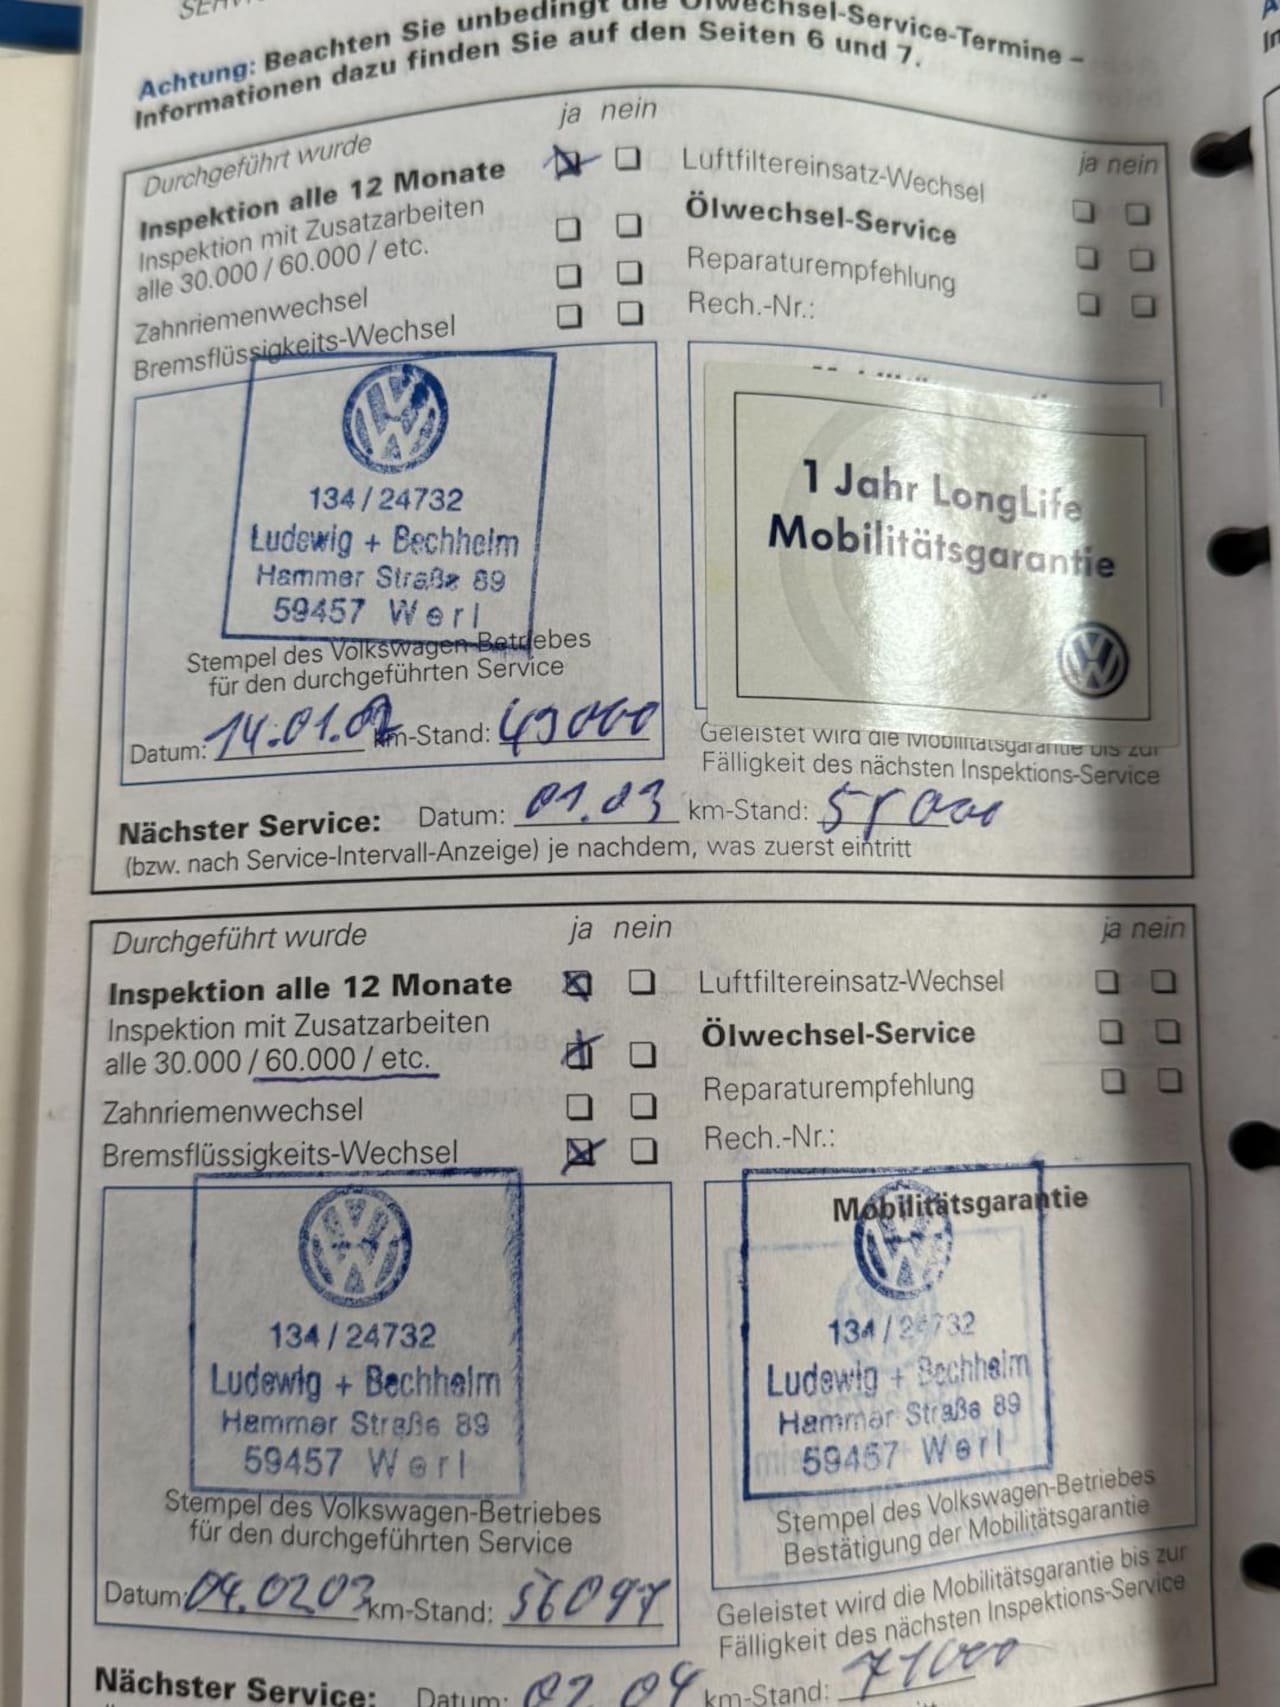 Achtung: Beachten Sie unbedingt die Ölwechsel-Service-Termine –
Informationen dazu finden Sie auf den Seiten 6 und 7.
Durchgeführt wurde
ja nein
Inspektion alle 12 Monate
Inspektion mit Zusatzarbeiten
alle 30.000 / 60.000 / etc.
Zahnriemenwechsel
Bremsflüssigkeits-Wechsel
ja nein
Luftfiltereinsatz-Wechsel
Ölwechsel-Service
Reparaturempfehlung
Rech.-Nr.:
134/24732
Ludewig + Bechheim
Hammer Straße 89
59457 Werl
Stempel des Volkswagen-Betriebes
für den durchgeführten Service
Datum: 14.01.02 km-Stand: 49000
1 Jahr LongLife
Mobilitätsgarantie
Geleistet wird die Mobilitätsgarantie bis zur
Fälligkeit des nächsten Inspektions-Service
Nächster Service: Datum: 01.03 km-Stand:
(bzw. nach Service-Intervall-Anzeige) je nachdem, was zuerst eintritt
Durchgeführt wurde
ja nein
Inspektion alle 12 Monate
Inspektion mit Zusatzarbeiten
alle 30.000 / 60.000 / etc.
Zahnriemenwechsel
Bremsflüssigkeits-Wechsel
ja nein
Luftfiltereinsatz-Wechsel
Ölwechsel-Service
Reparaturempfehlung
Rech.-Nr.:
134/24732
Ludewig + Bechheim
Hammer Straße 89
59457 Werl
Stempel des Volkswagen-Betriebes
für den durchgeführten Service
Datum: 04.0203 km-Stand: 56097
Mobilitätsgarantie
134/24732
Ludewig + Bechheim
Hammer Straße 89
59457 Werl
Stempel des Volkswagen-Betriebes
Bestätigung der Mobilitätsgarantie
Geleistet wird die Mobilitätsgarantie bis zur
Fälligkeit des nächsten Inspektions-Service
Nächster Service: Datum: 02.04 km-Stand: 71000